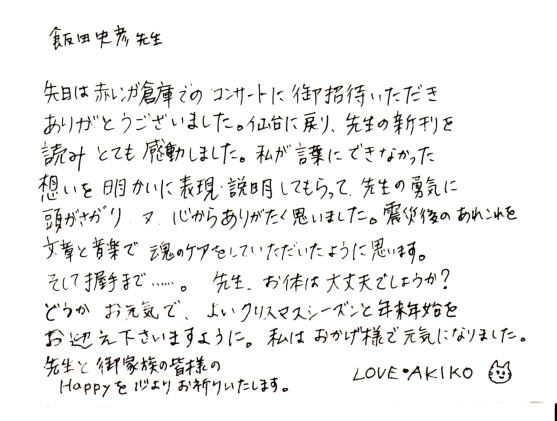 飯田史彦先生
先日は赤レンガ倉庫でのコンサートに御招待いただき
ありがとうございました。仙台に戻り、先生の新刊を
読みとても感動しました。私が言葉にできなかった
想いを明かいに表現・説明してもらって、先生の勇気に
頭がさがり、又、心からありがたく思いました。震災後のあれこれを
文章と音楽で魂のケアをしていただいたように思います。
そして握手まで……。先生、お体は大丈夫でしょうか?
どうかお元気で、よいクリスマスシーズンと年末年始を
お迎え下さいますように。私はおかげ様で元気になりました。
先生と御家族の皆様の
Happyを心よりお祈りいたします。
LOVE・AKIKO